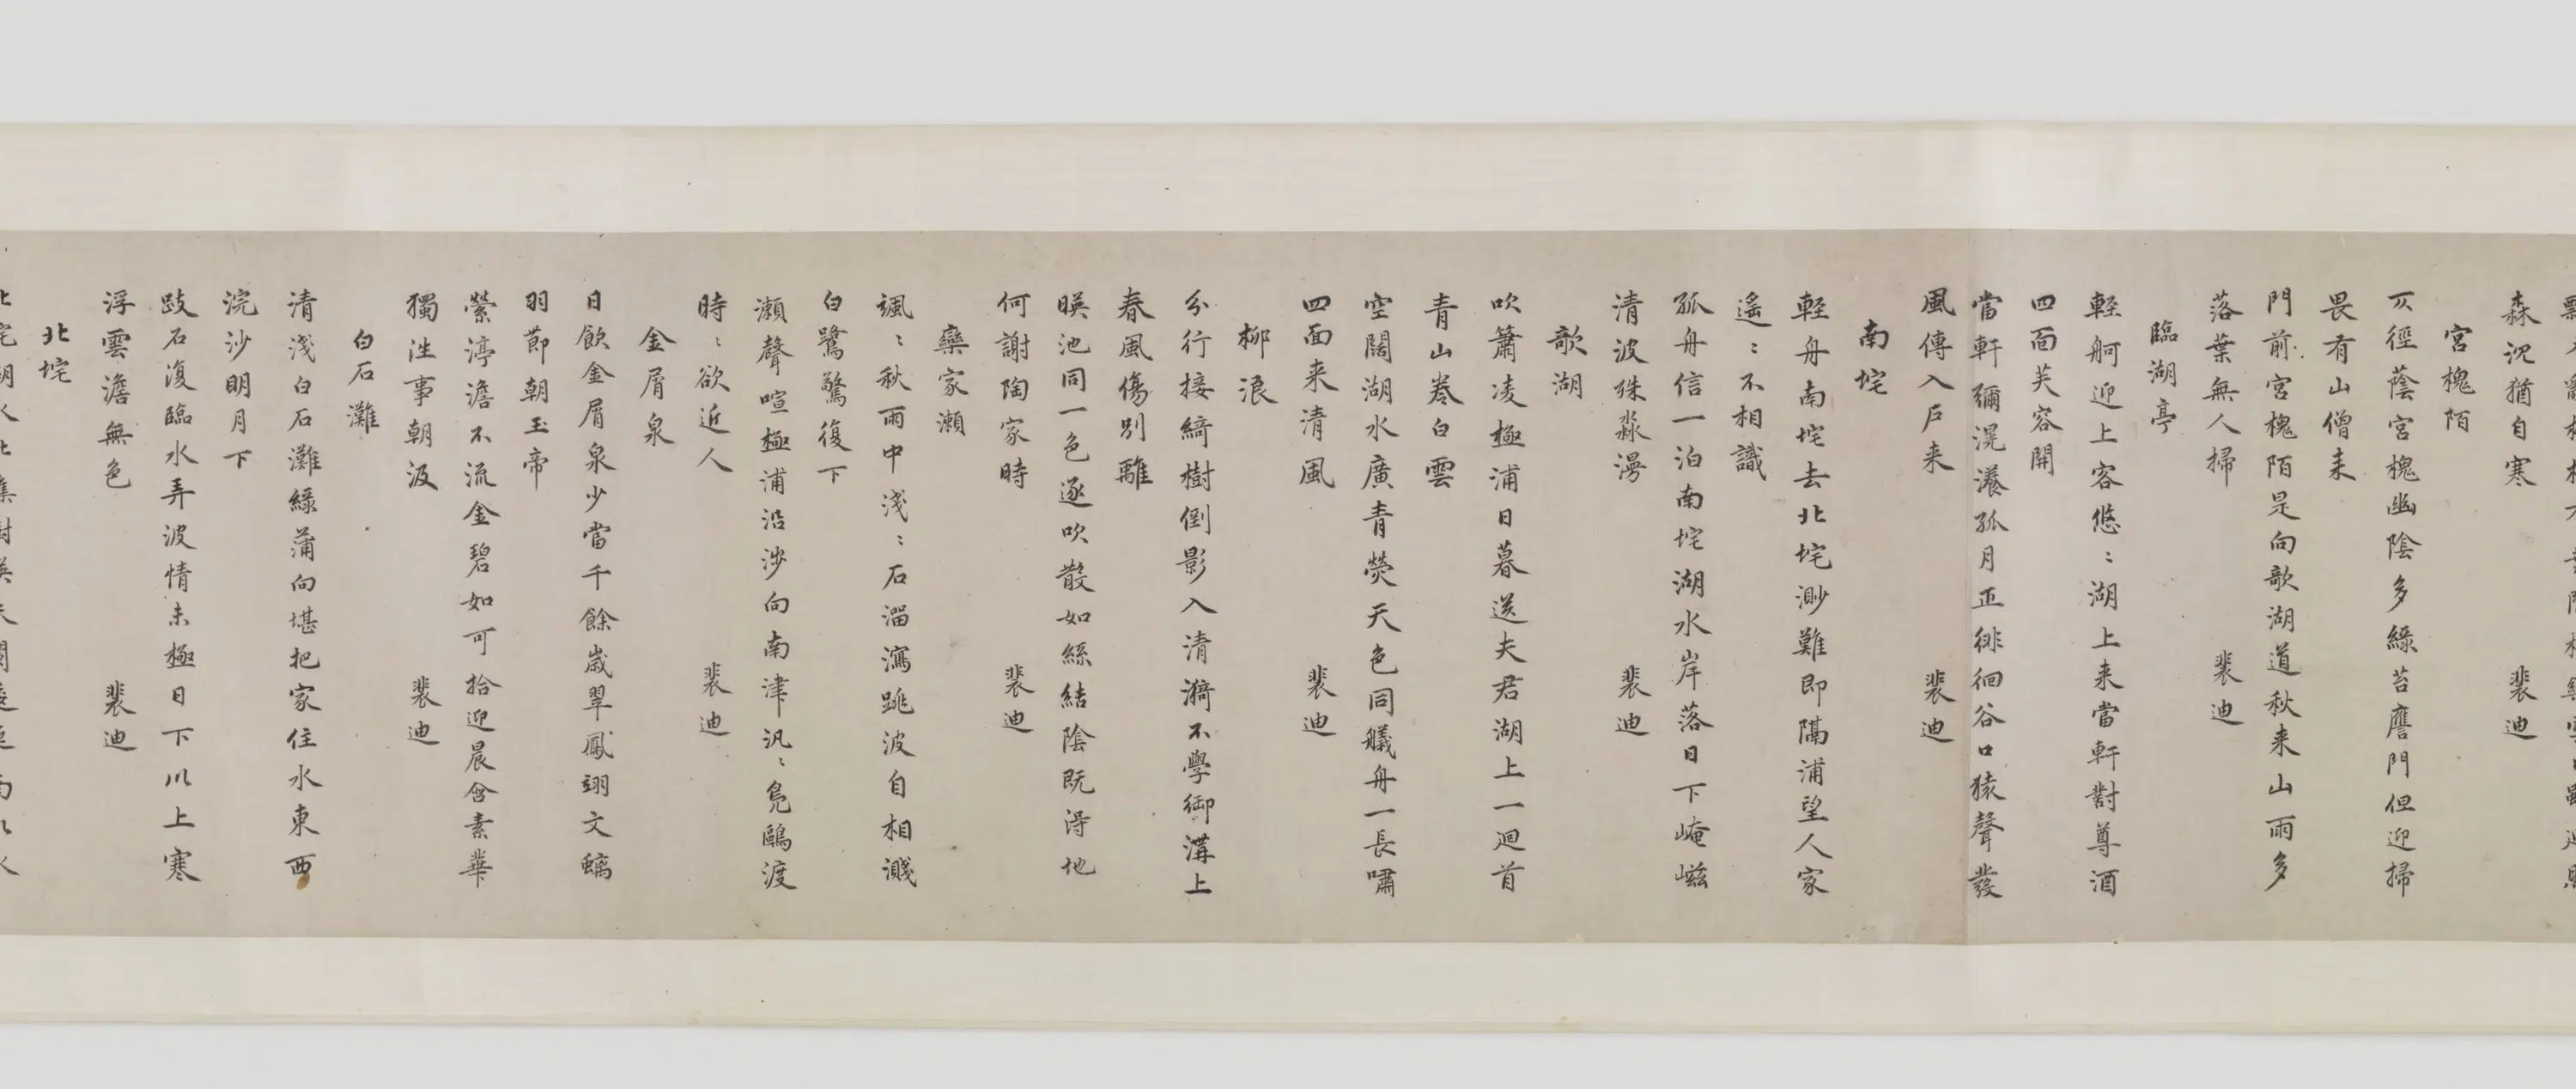 森沉猶自寒 裴迪
宮槐陌
仄徑蔭宮槐幽陰多綠苔應門但迎掃
畏有山僧来
門前宮槐陌是向歌湖道秋来山雨多
落葉無人掃 裴迪
臨湖亭
輕舸迎上客悠〻湖上来當軒對尊酒
四面芙容開
當軒彌滉瀁孤月正徘徊谷口猿聲發
風傳入戶来 裴迪
南垞
輕舟南垞去北垞渺難即隔浦望人家
遙〻不相識
孤舟信一泊南垞湖水岸落日下崦嵫
清波殊淼漫 裴迪
歌湖
吹簫凌極浦日暮送夫君湖上一迴首
青山卷白雲
空闊湖水廣青熒天色同艤舟一長嘯
四面来清風 裴迪
柳浪
分行接綺樹倒影入清漪不學御溝上
春風傷別離
映池同一色逐吹散如絲結陰既得地
何謝陶家時 裴迪
欒家瀨
颯〻秋雨中淺〻石溜瀉跳波自相濺
白鷺驚復下
瀨聲喧極浦沿涉向南津汎〻鳧鷗渡
時〻欲近人 裴迪
金屑泉
日飲金屑泉少當千餘歲翠鳳翊文螭
羽節朝玉帝
縈渟澹不流金碧如可拾迎晨含素華
獨泩事朝汲 裴迪
白石灘
清淺白石灘綠蒲向堪把家住水東西
浣沙明月下
跂石復臨水弄波情未極日下川上寒
浮雲澹無色 裴迪
北垞